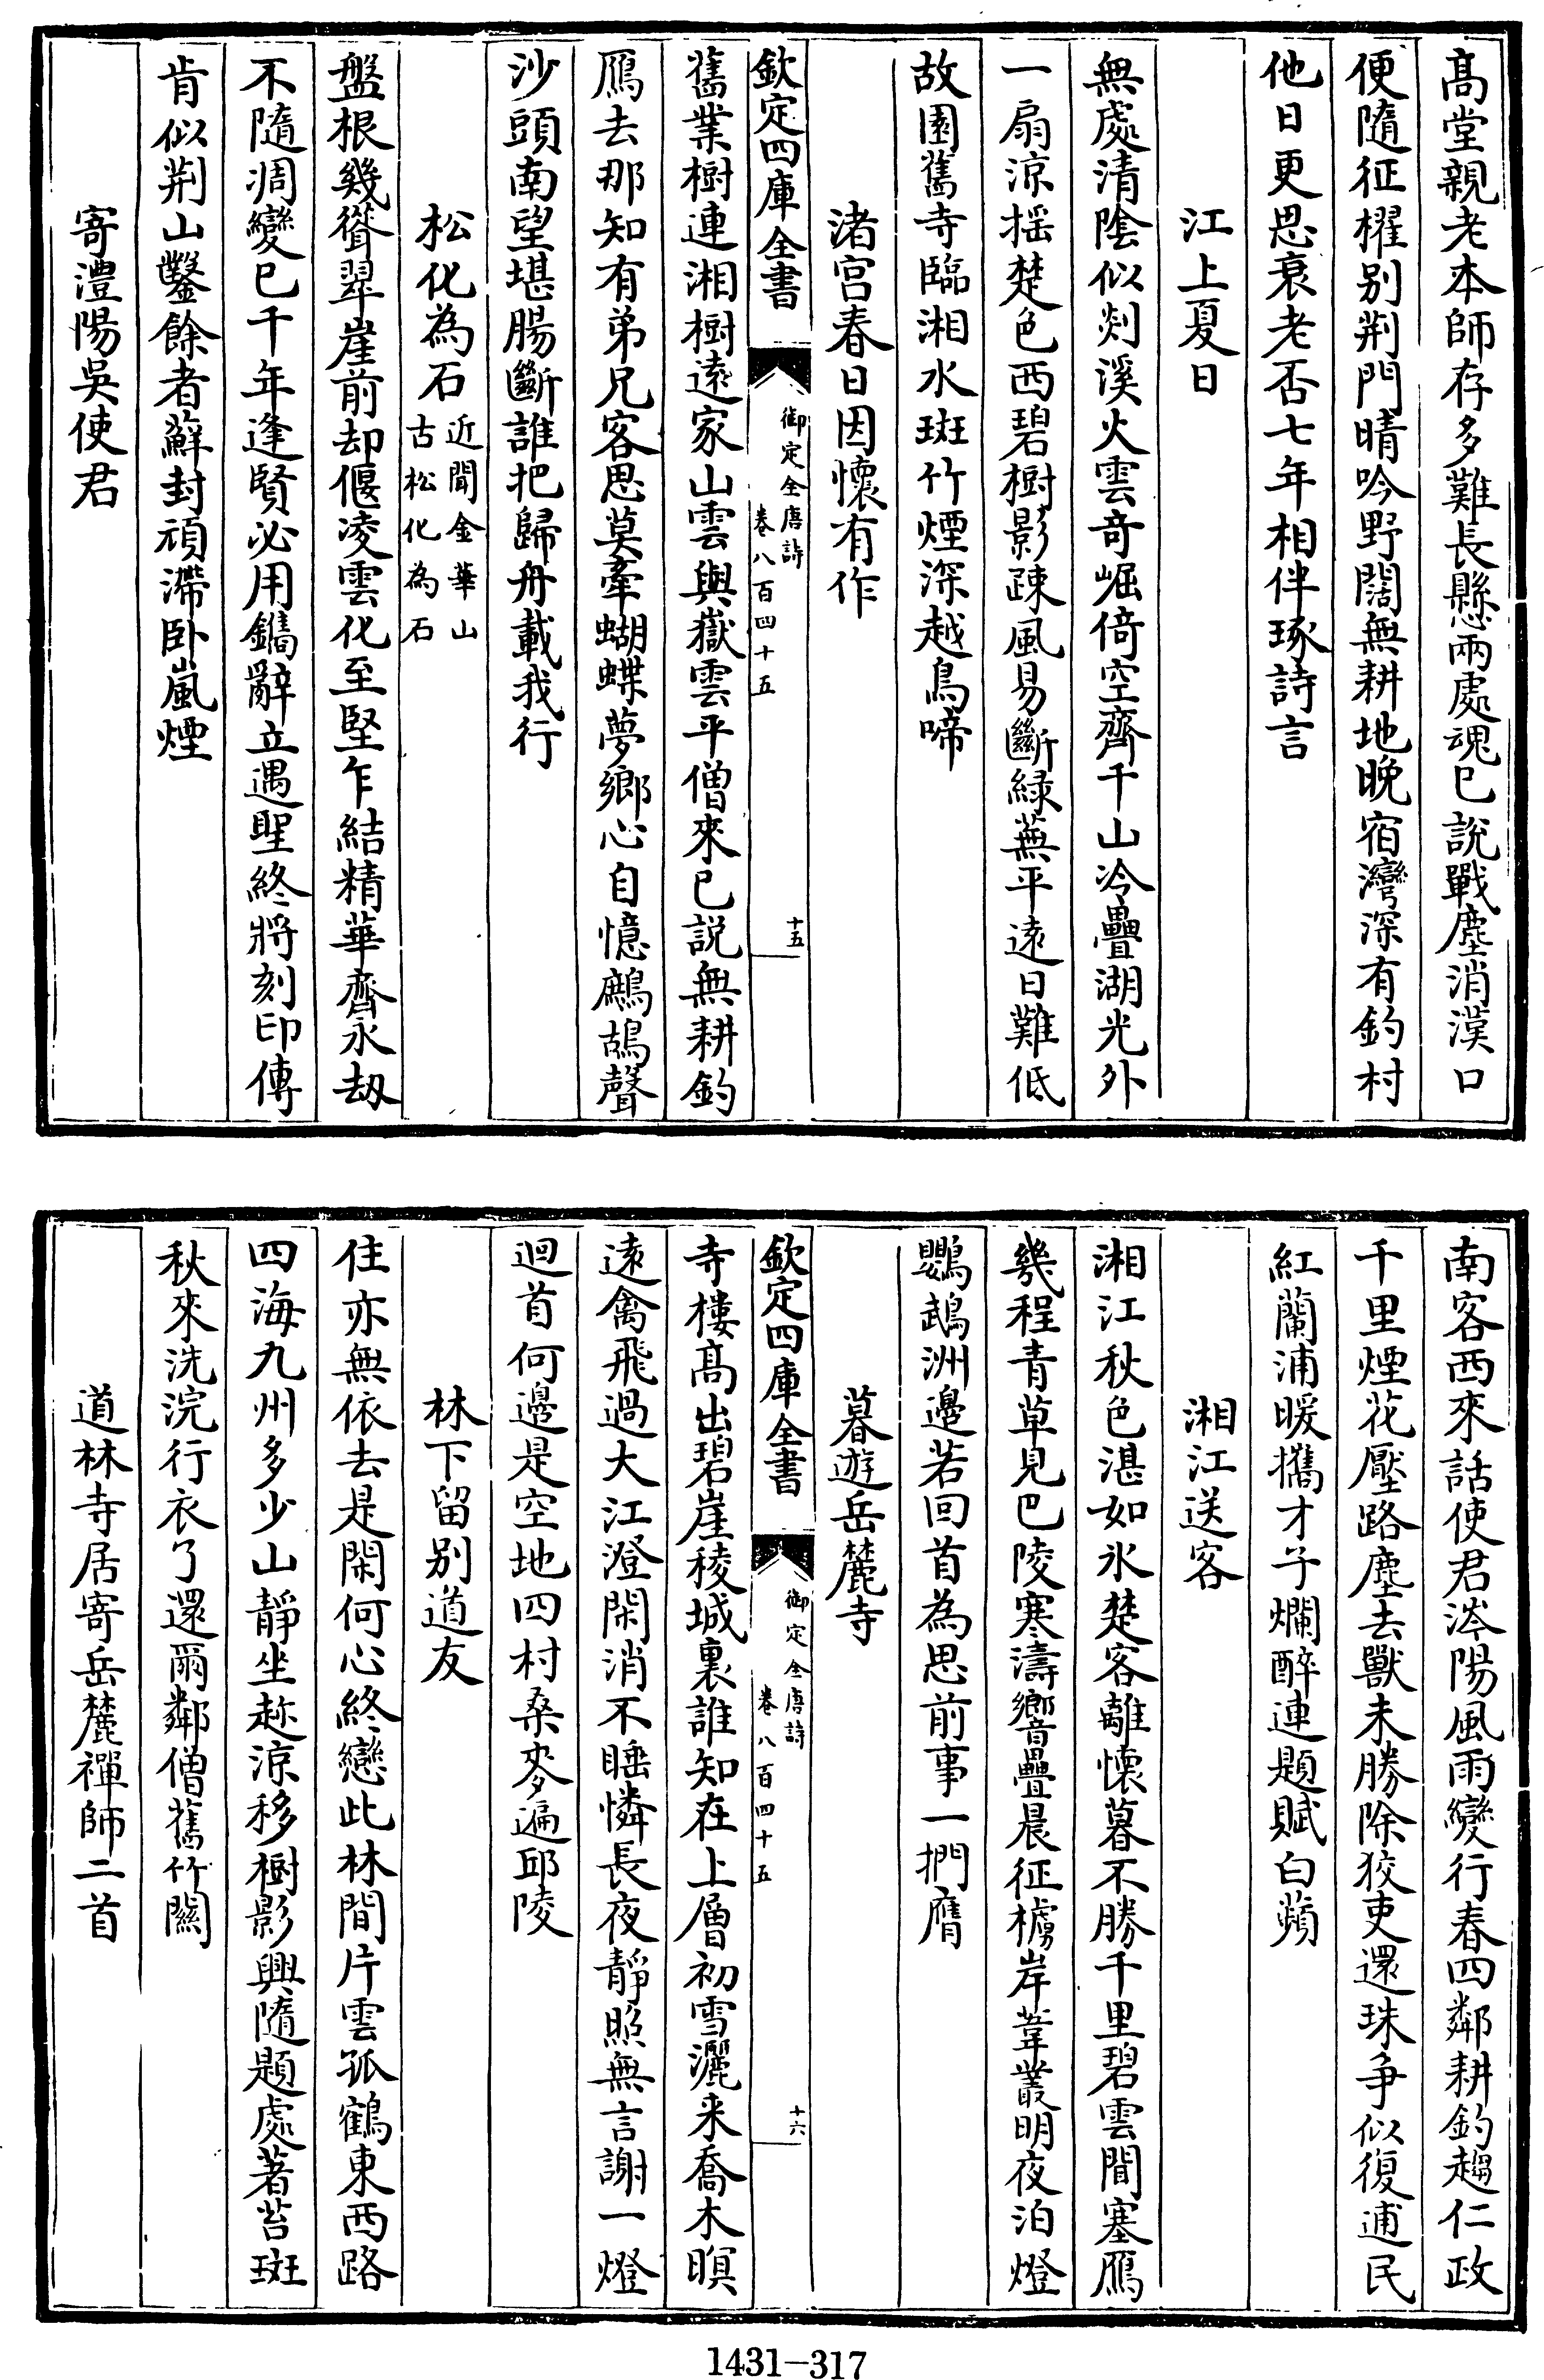 高堂親老本師存多難長懸兩處魂已說戰塵消漢口
便隨征櫂别荆門晴吟野闊無耕地晚宿灣深有釣村
他日更思衰老否七年相伴琢詩言
江上夏日
無處清陰似剡溪火雲奇崛倚空齊千山冷疊湖光外
一扇涼揺楚色西碧樹影疎風易斷緑蕪平遠日難低
故園舊寺臨湘水斑竹煙深越鳥啼
渚宫春日因懷有作
欽定四庫全書
御定全唐詩
卷八百四十五
十五
舊業樹連湘樹遠家山雲與嶽雲平僧來已説無耕釣
鴈去那知有弟兄客思莫牽蝴蝶夢鄉心自憶鷓鴣聲
沙頭南望堪腸斷誰把歸舟載我行
松化為石
近聞金華山
古松化為石
盤根幾聳翠崖前却偃凌雲化至堅乍結精華齊永刼
不隨凋變已千年逢賢必用鐫辭立遇聖終將刻印傳
肯似荆山鑿餘者蘚封頑滯卧嵐煙
寄澧陽吳使君
南客西來話使君涔陽風雨變行春四鄰耕釣趨仁政
千里煙花壓路塵去獸未勝除狡吏還珠爭似復逋民
紅蘭浦暖攜才子爛醉連題賦白蘋
湘江送客
湘江秋色湛如氷楚客離懷暮不勝千里碧雲聞塞鴈
幾程青草見巴陵寒濤響疊晨征櫓岸葦叢明夜泊燈
鸚鵡洲邊若回首為思前事一捫膺
暮遊岳麓寺
欽定四庫全書
御定全唐詩
卷八百四十五
十六
寺樓髙出碧崖稜城裏誰知在上層初雪灑来喬木暝
遠禽飛過大江澄閑消不睡憐長夜靜照無言謝一燈
迴首何邊是空地四村桑麥遍邱陵
林下留别道友
住亦無依去是閑何心終戀此林間片雲孤鶴東西路
四海九州多少山靜坐趂涼移樹影興隨題處著苔斑
秋來洗浣行衣了還爾鄰僧舊竹關
道林寺居寄岳麓禪師二首
1431-317